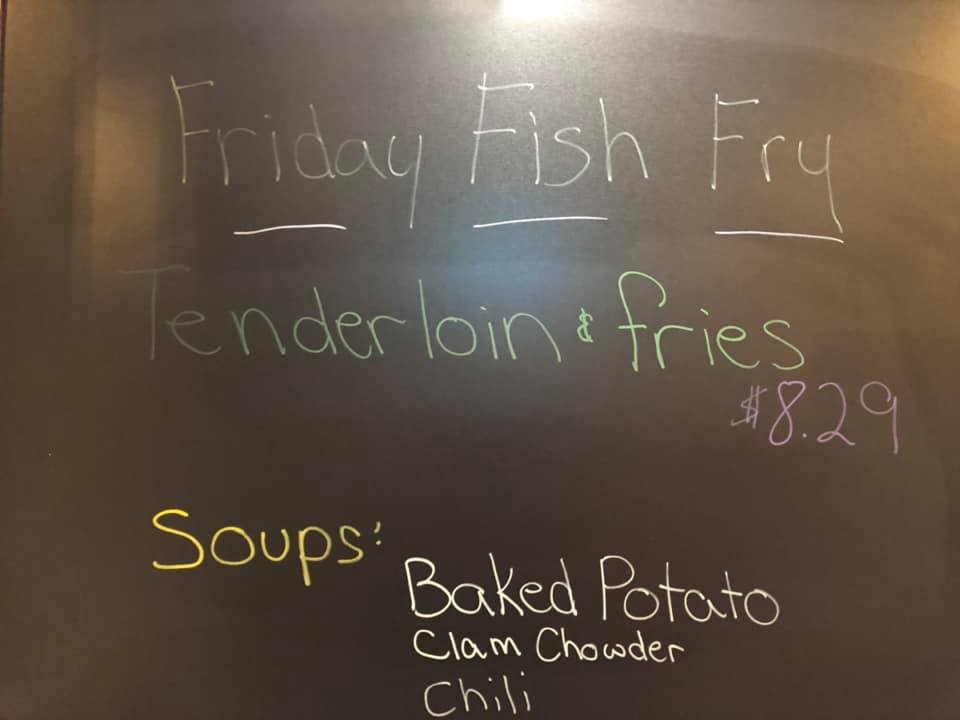 Friday Fish Fry
Tenderloin & fries
$8.29
Soups:
Baked Potato
Clam Chowder
Chili